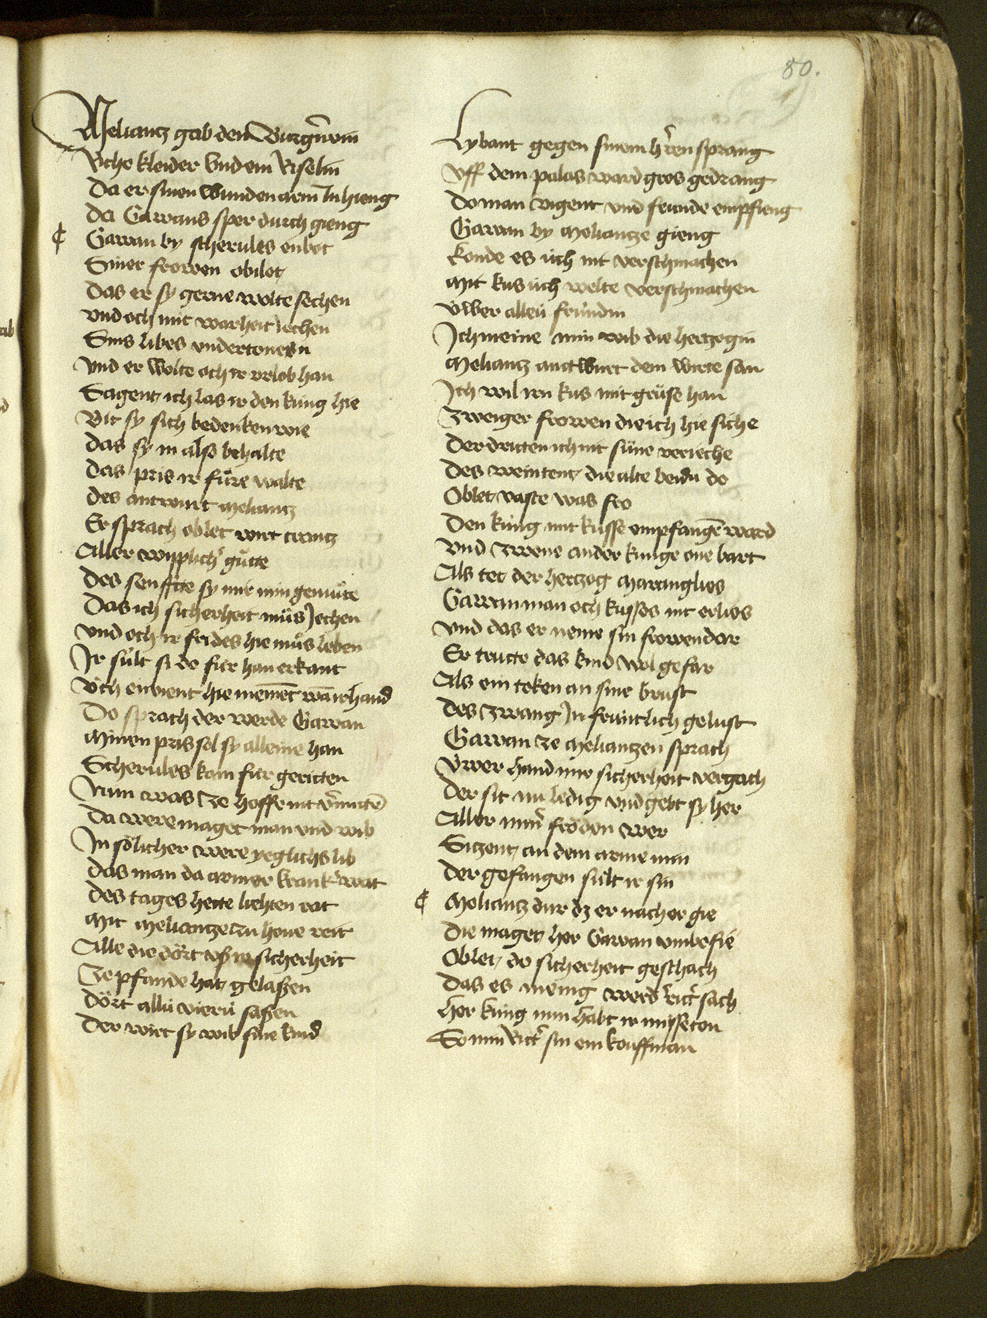 80.
Meliantz gab den Burgr̄win
Riche kleider Vnd ein Riselin
Da er sinen wunden arm In hieng
da Gawans sper durch gieng
Gawan by scherules enbot
Siner frowen obilot
Das er sy gerne wolte sechen
vnd och mit warheit iechen
Sins libes vndertonen
Vnd er wolte och ir vrlob han
Sagent ich las ir den kung hie
Bit sy sich bedenken wie
das sy in also behalte
das pris ir fure walte
des antwurt meliantz
Er sprach oblet wirt crantz
Aller wiplich gütte
des senfftte sy mir min gemüte
Das ich sicherheit müs Jechen
vnd och ir frides hie müs leben
Ir sült si do für han erkant
Vch enwent hie niement wan ir hand
Do sprach der werde Gawan
Minen pris sol sy alleine han
Scherules kam für geritten
Nun was ze hoff nit v̄mittē
Da were maget man vnd wib
In sölicher were yeglichs lib
das man da armer krank wat
des tages hette lichten rat
Mit meliantze zu houe reit
Alle die dört vss ir sicherheit
Ze pfande hat gelassen
dört allü vierü sassen
der wirt sy wib sine kind
Lybant gegen sinem h̄ren sprang
Vff dem palas ward gros gedrang
Do man vigent vnd frunde empfieng
Gawan by meliantze gieng
konde es uch nit verschmachen
Mit kus uch welte verschmachen
Vwer alleu frundin
Ich meine min wib die hertzogin
Meliantz antwurt dem wirte san
Ich wil irn kus mit grüse han
Zweiger frowen die ich hie siche
Der dritten ich nit süne veriche
Des weintent die alte beidu do
Oblet vaste was fro
Den kung mit kusse empfangē ward
vnd zwene ander kunge one bart
Als tet der hertzog maranglios
Gawan man och kusses nit erlies
vnd das er neme sin frowen dar
Er tructe das kind wol gefar
Als ein token an sine brust
Des zwang In fruntlich gelust
Gawan ze meliantzen sprach
Vwer hand mir sicherheit veriach
Der sit nu ledig vnd gebt sy her
Aller min fröden wer
Sitzent an dem arme min
der gefangen sült ir sin
Meliantz dur dz er nacher gie
Die maget her Gawan vmbefie
Oblet do sicherheit geschach
das es menig werd ritt sach
her kung nun habt ir missetan
So min ritt sin ein kouffman